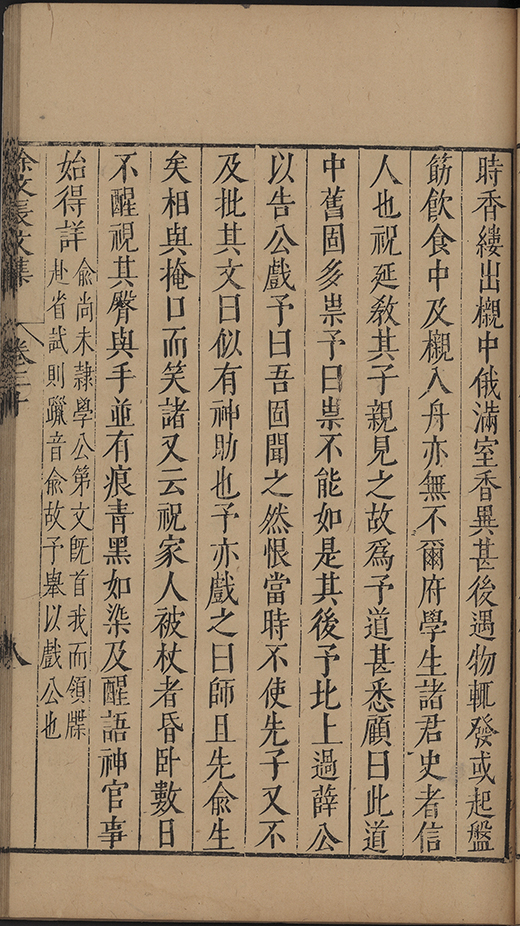 時香縷出櫬中俄滿室香異甚後遇物輒發或起盤
筯飲食中及櫬入舟亦無不爾府學生諸君史者信
人也祝延敎其子親見之故爲予道甚悉顧曰此道
中舊固多祟予曰祟不能如是其後予北上過薛公
以告公戲予曰吾固聞之然恨當時不使先子又不
及批其文曰似有神助也予亦戲之曰師且先兪生
矣相與掩口而笑諸又云祝家人被杖者昏卧數日
不醒視其臀與手並有痕青黑如染及醒語神官事
始得詳
兪尚未隷學公第文旣首我而領牒
赴省試則躐音兪故予舉以戲公也
徐文長文集
卷三十
八